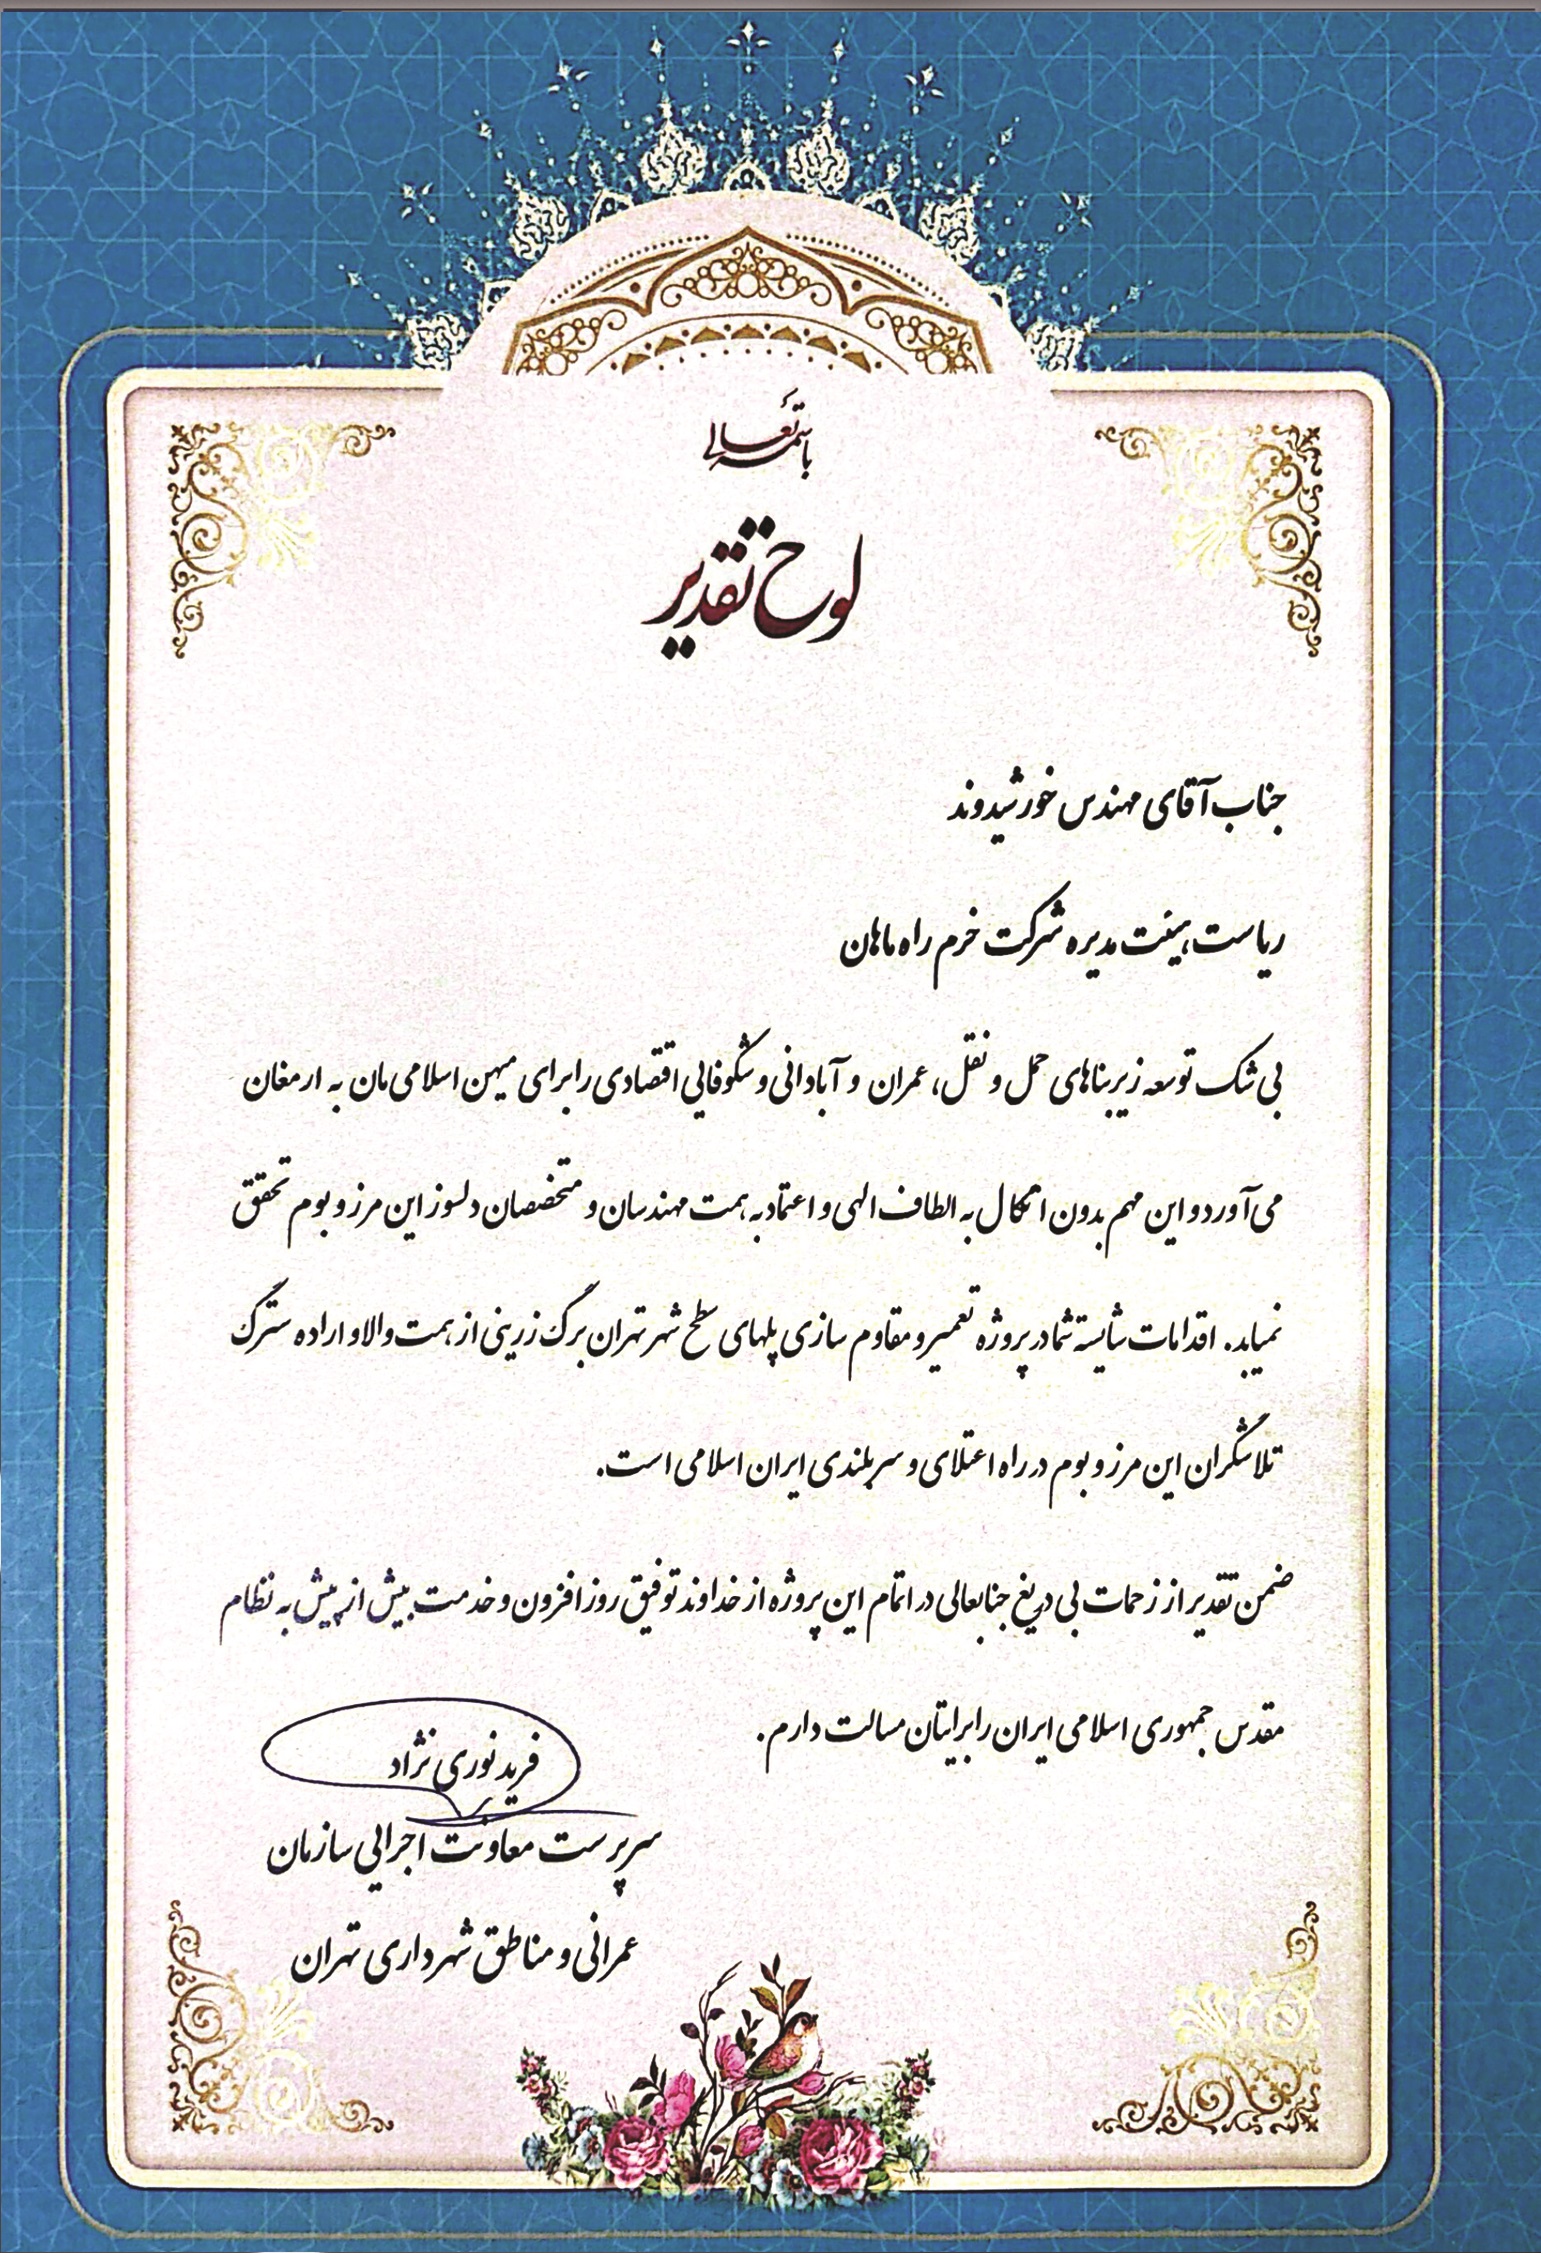 باسمه تعالی
لوح تقدیر
جناب آقای مهندس خورشیدوند
ریاست هیئت مدیره شرکت خرم راه ماهان
بی شک توسعه زیربناهای حمل و نقل، عمران و آبادانی و شکوفایی اقتصادی را برای میهن اسلامی‌مان به ارمغان
می‌آورد و این مهم بدون اتکال به الطاف الهی و اعتماد به همت مهندسان و متخصصان دلسوز این مرز و بوم تحقق
نمیابد. اقدامات شایسته شما در پروژه تعمیر و مقاوم سازی پلهای سطح شهر تهران برگ زرینی از همت والا و اراده سترگ
تلاشگران این مرز و بوم در راه اعتلای و سربلندی ایران اسلامی است.
ضمن تقدیر از زحمات بی دریغ جنابعالی در اتمام این پروژه از خداوند توفیق روز افزون و خدمت بیش از پیش به نظام
مقدس جمهوری اسلامی ایران را برایتان مسالت دارم.
فرید نوری نژاد
سرپرست معاونت اجرایی سازمان
عمرانی و مناطق شهرداری تهران